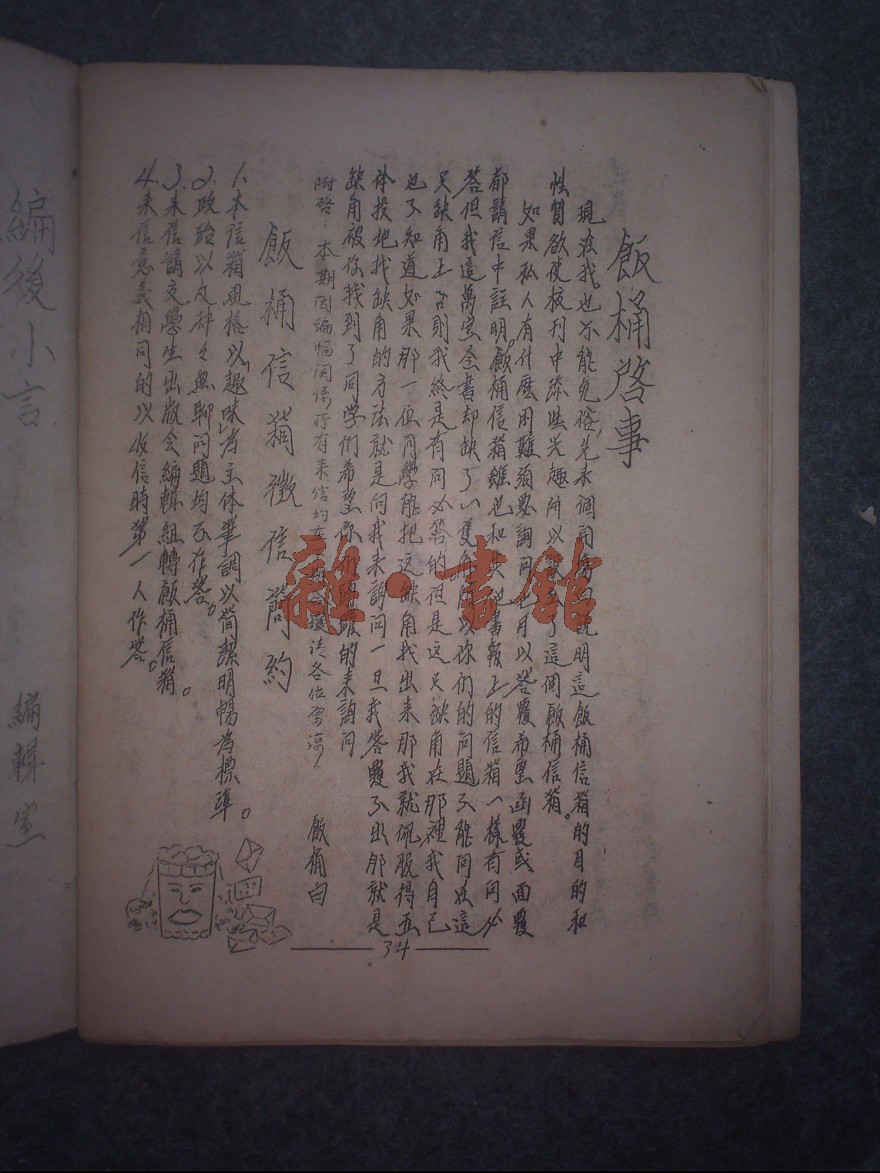 飯桶啓事
現在我也不能免俗，先來個開場白說明這飯桶信箱的目的和
性質欲使校刊中添些兴趣所以了這個飯桶信箱。
如果私人有什麽困難須要詢問是以答覆希望函覆或面覆
都請信中註明。飯桶信箱雖也和其他書報上的信箱一樣有問必
答但我這萬宝全書却缺了一隻角所以你们的问题不能问在這
只缺角上否則我終是有问必答的但是这只缺角在那裡我自己
也不知道如果那一位同學能把这缺角找出来那我就佩服得五
体投地找缺角的方法就是向我来詢问一旦我答覆不出那就是
缺角被你找到了同学们希望你们踴躍的来詢问
附啓：本期因編幅関係所有来信均在各位原諒！
飯桶白
飯桶信箱徵信簡約
1.本信箱風格以「趣味」为主体筆調以简潔明暢为標準。
2.政治以及碎々無聊问题均不作答。
3.来信請交學生出版会編輯組轉飯桶信箱。
4.来信意義相同的以收信時第一人作答。
34
編後小言
編輯室
雜·書館